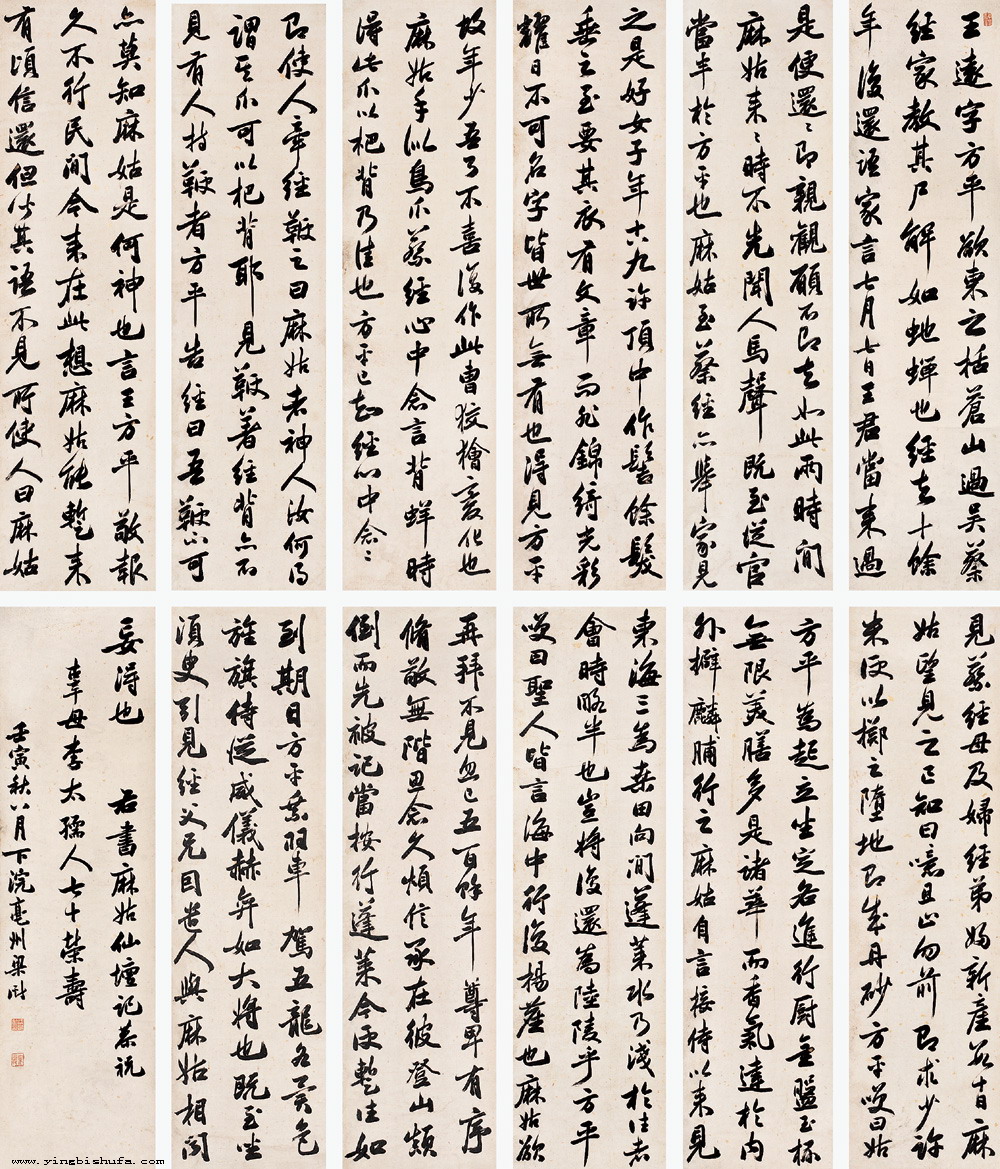 王遠字方平欲東之括蒼山過吳蔡
經家教其尸解如蛇蟬也經去十餘
年後還語家言七月七日王君當來過
是便還〻即親覲願不即去如此兩時間
麻姑來〻時不先聞人馬聲既至從官
當半於方平也麻姑至蔡經亦舉家見
之是好女子年十八九許頂中作髻餘髮
垂之至要其衣有文章而非錦綺光彩
耀日不可名字皆世所無有也得見方平
故年少吾了不喜復作此曹狡獪變化也
麻姑手似鳥爪蔡經心中念言背蛘時
得此爪以杷背乃佳也方平已知經心中念〻
即使人牽經鞭之曰麻姑者神人汝何得
謂其爪可以杷背耶見鞭著經背亦不
見有人持鞭者方平告經曰吾鞭不可
亦莫知麻姑是何神也言王方平敬報
久不行民間今來在此想麻姑能暫來
有頃信還但聞其語不見所使人曰麻姑
見蔡經母及婦經弟婦新產數十日麻
姑望見之已知曰噫且止勿前即求少許
米便以擲之墮地即成丹砂方平笑曰姑
方平為起立坐定各進行廚金盤玉杯
無限美膳多是諸華而香氣達於內
外擗麟脯行之麻姑自言接侍以來見
東海三為桑田向間蓬萊水乃淺於往者
會時略半也豈將復還為陸陵乎方平
笑曰聖人皆言海中行復揚塵也麻姑欲
再拜不見忽已五百餘年尊卑有序
脩敬無階思念久煩信承在彼登山顛
倒而先被記當按行蓬萊今便暫往如
到期日方平乘羽車駕五龍各異色
旌旗侍從威儀赫弈如大將也既至坐
須臾引見經父兄因遣人與麻姑相聞
妄得也 右書麻姑仙壇記恭祝
辜母李太孺人七十榮壽
壬寅秋八月下浣亳州梁巘
www.yingbishufa.com